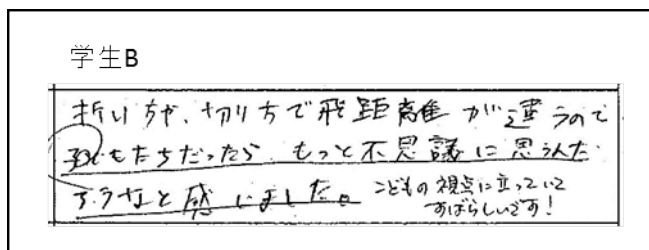 学生B
折り方や、切り方で飛距離が違うので
子どもたちだったら、もっと不思議に思うんだ
ろうなと感じました。
こどもの視点に立っていて
すばらしいです!